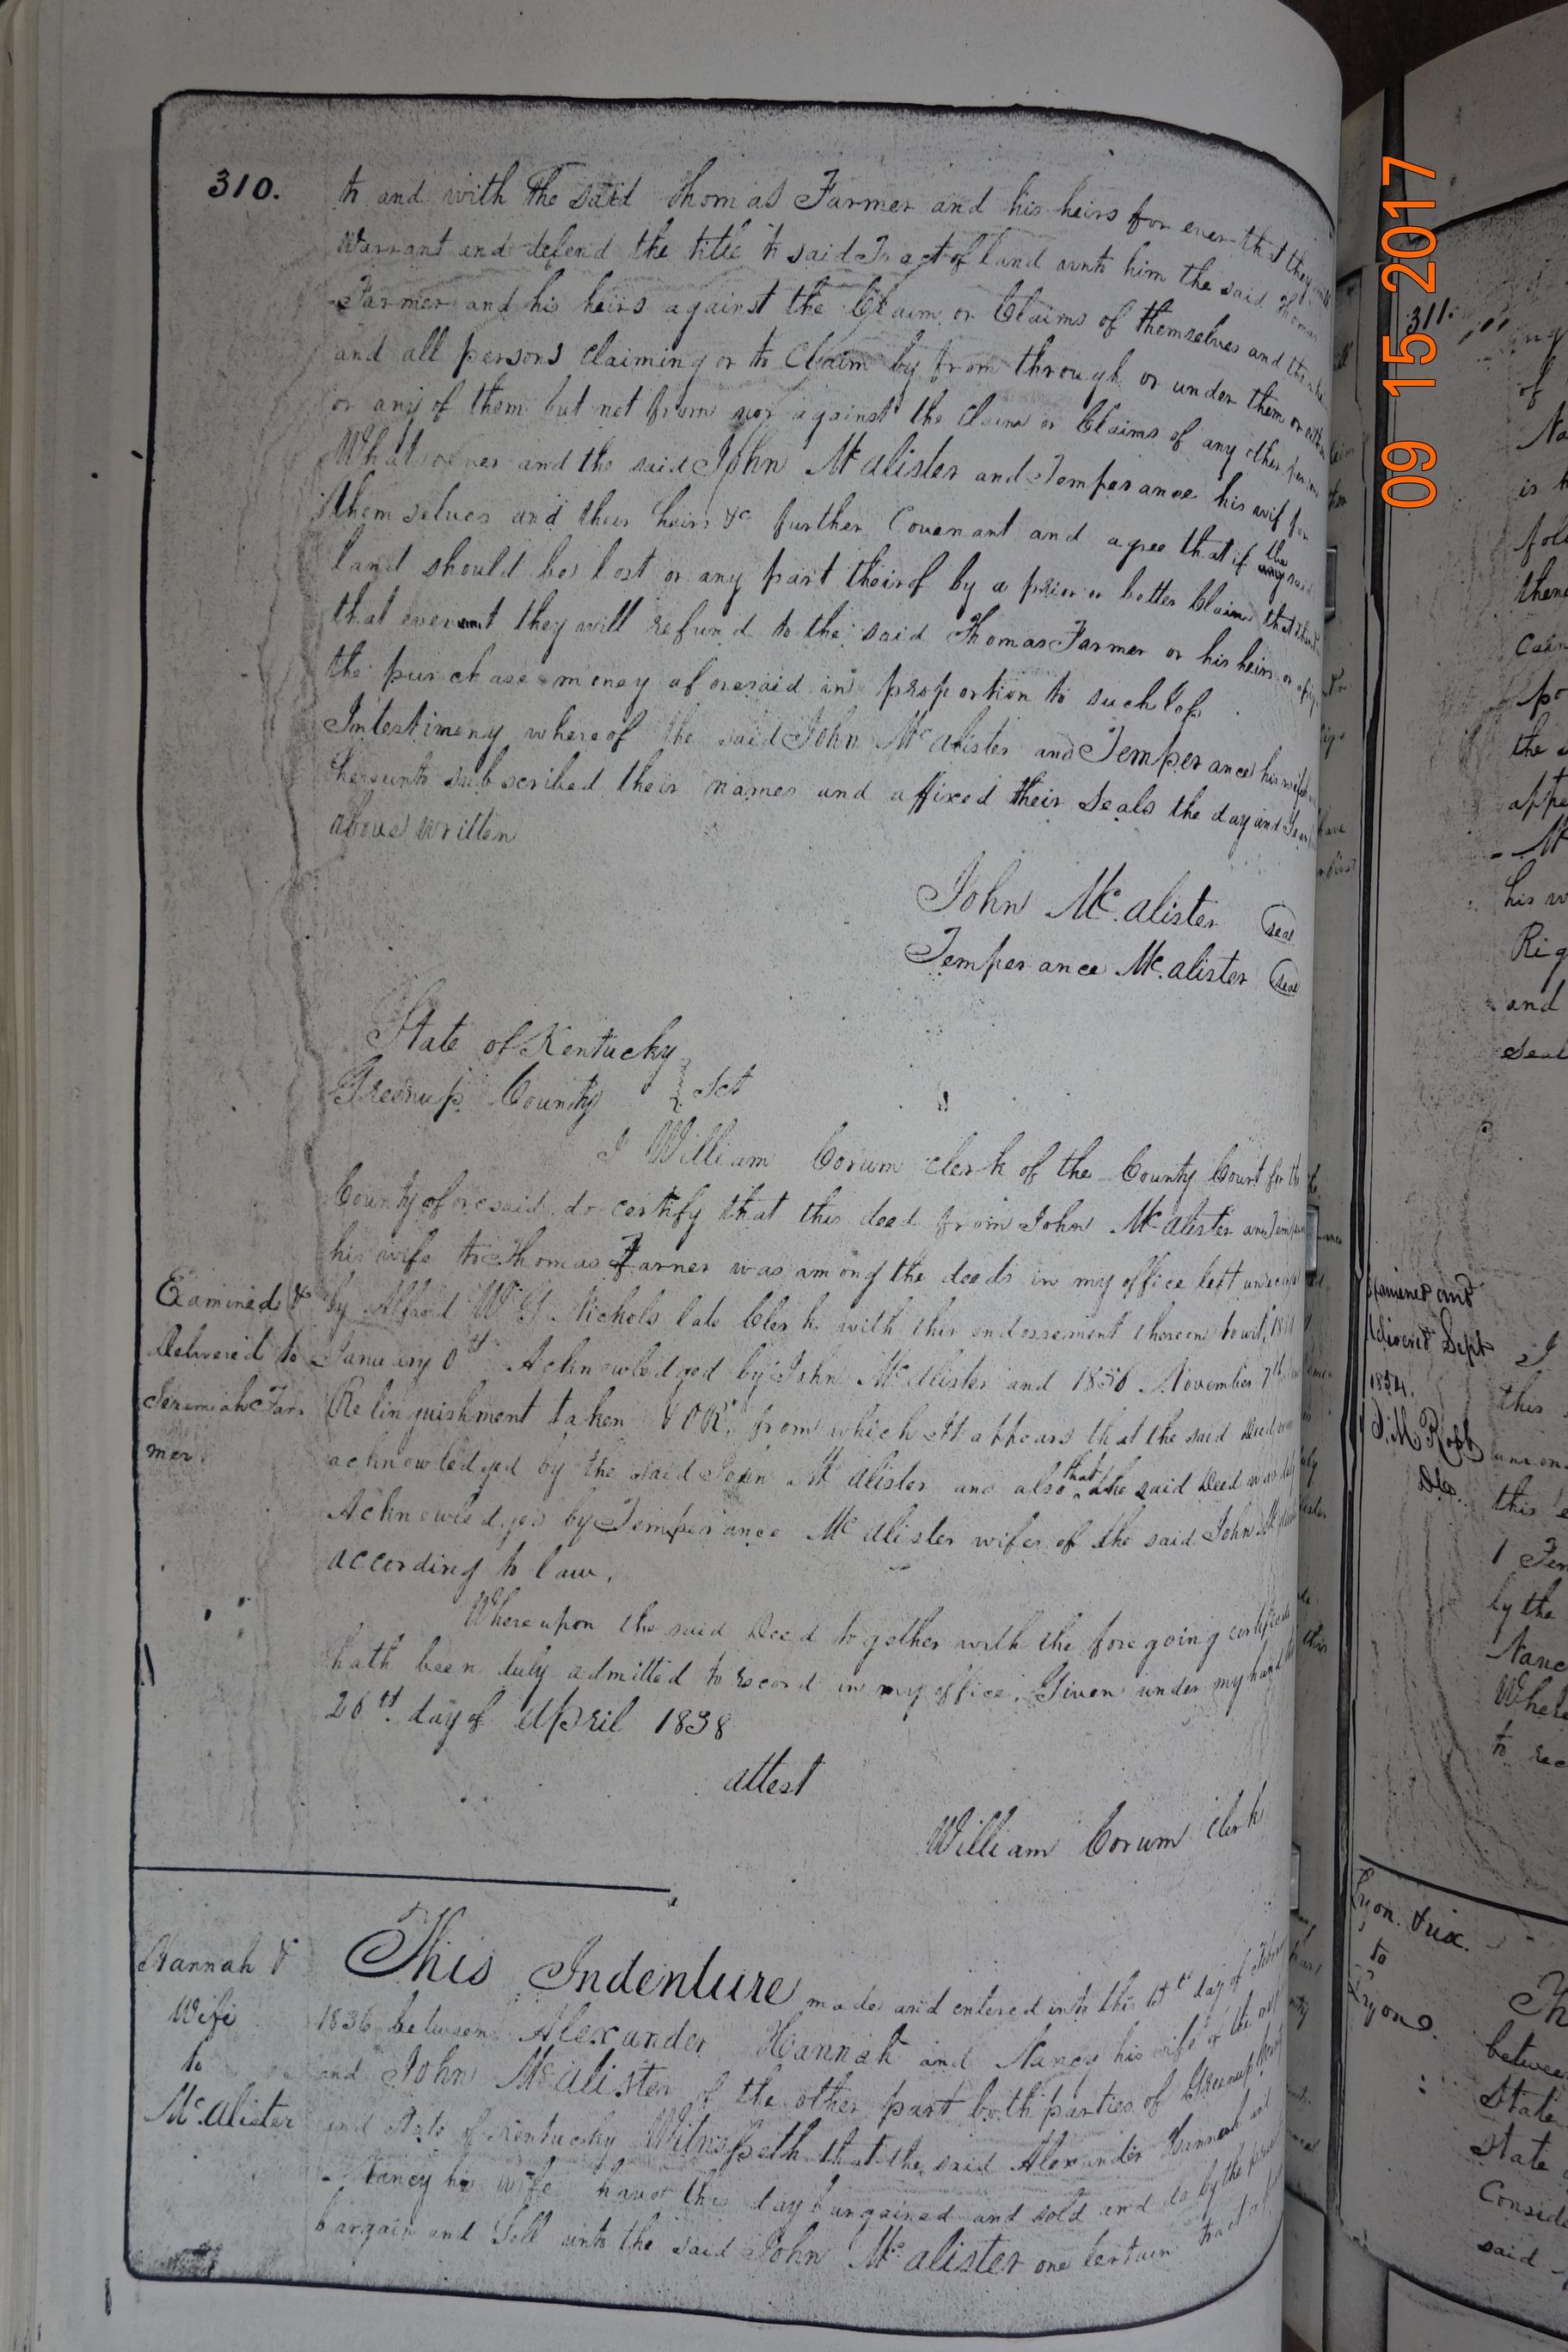 310.
to and with the said Thomas Farmer and his heirs for ever that they will
Warrant and defend the title to said Tract of land unto him the said Thomas
Farmer and his heirs against the Claim or Claims of themselves and their
and all persons claiming or to Claim by from through or under them or either
or any of them but not from nor against the Claim or Claims of any other person
Whatsoever and the said John Mc.alister and Temperance his wif for
themselves and their heirs &c further Covenant and agree that if the said
land should be lost or any part theirof by a prior or better Claim that then
that event they will refund to the said Thomas Farmer or his heirs or
the purchase money aforesaid in proportion to such loss
Intestimony whereof the said John Mc.alister and Temperance his wife
hereunto subscribed their names and affixed their Seals the day and Year
above written
John Mc.alister seal
Temperance Mc.alister seal
State of Kentucky
Greenup County } Sct
I William Corum clerk of the County Court for the
County aforesaid do certify that this deed from John Mc.alister and
his wife to Thomas Farmer was among the deeds in my office left
by Alfred W G Nichols late Clerk with this endorsement thereon towit,
January Acknowledged by John McAlister and 1836 November 7th
Relinquishment taken & OR, from which it appears that the said Deed was
acknowledged by the said John Mc alister and also that the said Deed was
Acknowledged by Temperance Mc Alister wife of the said John
according to law.
Examined &
Delivered to
Jeremiah Far-
mer.
Whereupon the said Deed together with the foregoing certificate
hath been duly admitted to record in my office. Given under my hand
26th day of April 1838
attest
William Corum clerk
Hannah &
Wife
to
Mc.alister
This Indenture made and entered into this 15th day of
1836 between Alexander Hannah and Nancy his wife of the one
and John Mc.alister of the other part both parties of Greenup
and State of Kentucky Witnesseth that the said Alexander Hannah and
Nancy his wife have this day bargained and sold and do by
bargain and Sell unto the said John Mc.alister one certain tract
311.
of
is
the
his w
and
Seal
Examined and
delivered Sept
1854.
this
by the
Nanc
Where
to rec
Lyon. Trix.
to
Lyon.
Th
between
State
State
Conside
said
09 15 2017